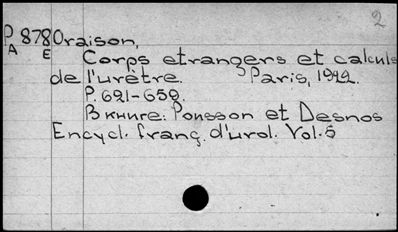 2
P 878 Oraison,
A E Corps etrangers et calculs
de l'urètre. Paris, 1922.
P. 621-659.
В книге: Pousson et Desnos
Encycl. franç. d'urol. Vol. 5